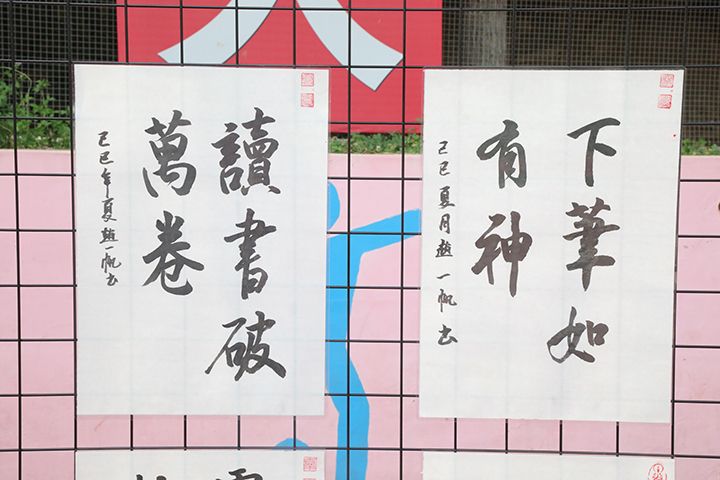 讀書破
萬卷
己巳年夏趙一帆书
下筆如
有神
己巳夏月趙一帆书